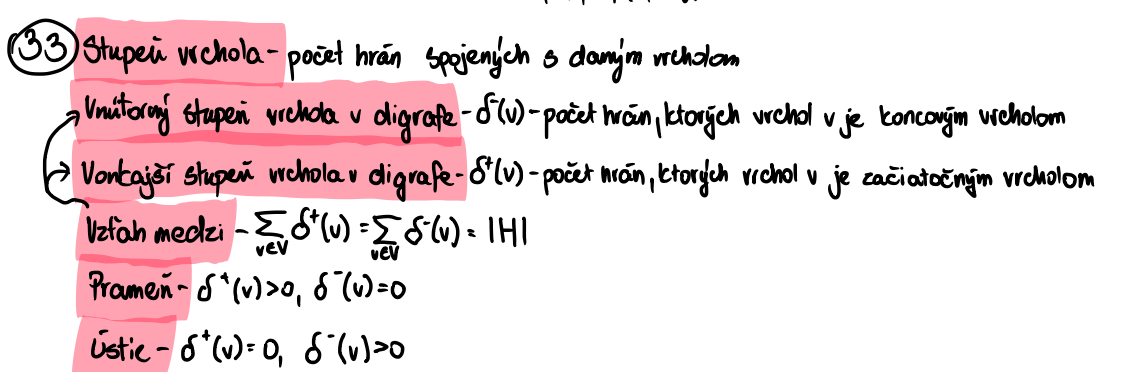 33 Stupeň vrchola - počet hrán spojených s daným vrcholom
Vnútorný stupeň vrchola v digrafe - δ⁻(v) - počet hrán, ktorých vrchol v je koncovým vrcholom
Vonkajší stupeň vrchola v digrafe - δ⁺(v) - počet hrán, ktorých vrchol v je začiatočným vrcholom
Vzťah medzi - ∑ᵥ∈V δ⁺(v) = ∑ᵥ∈V δ⁻(v) = |H|
Prameň - δ⁺(v)>0, δ⁻(v)=0
Ústie - δ⁺(v)=0, δ⁻(v)>0